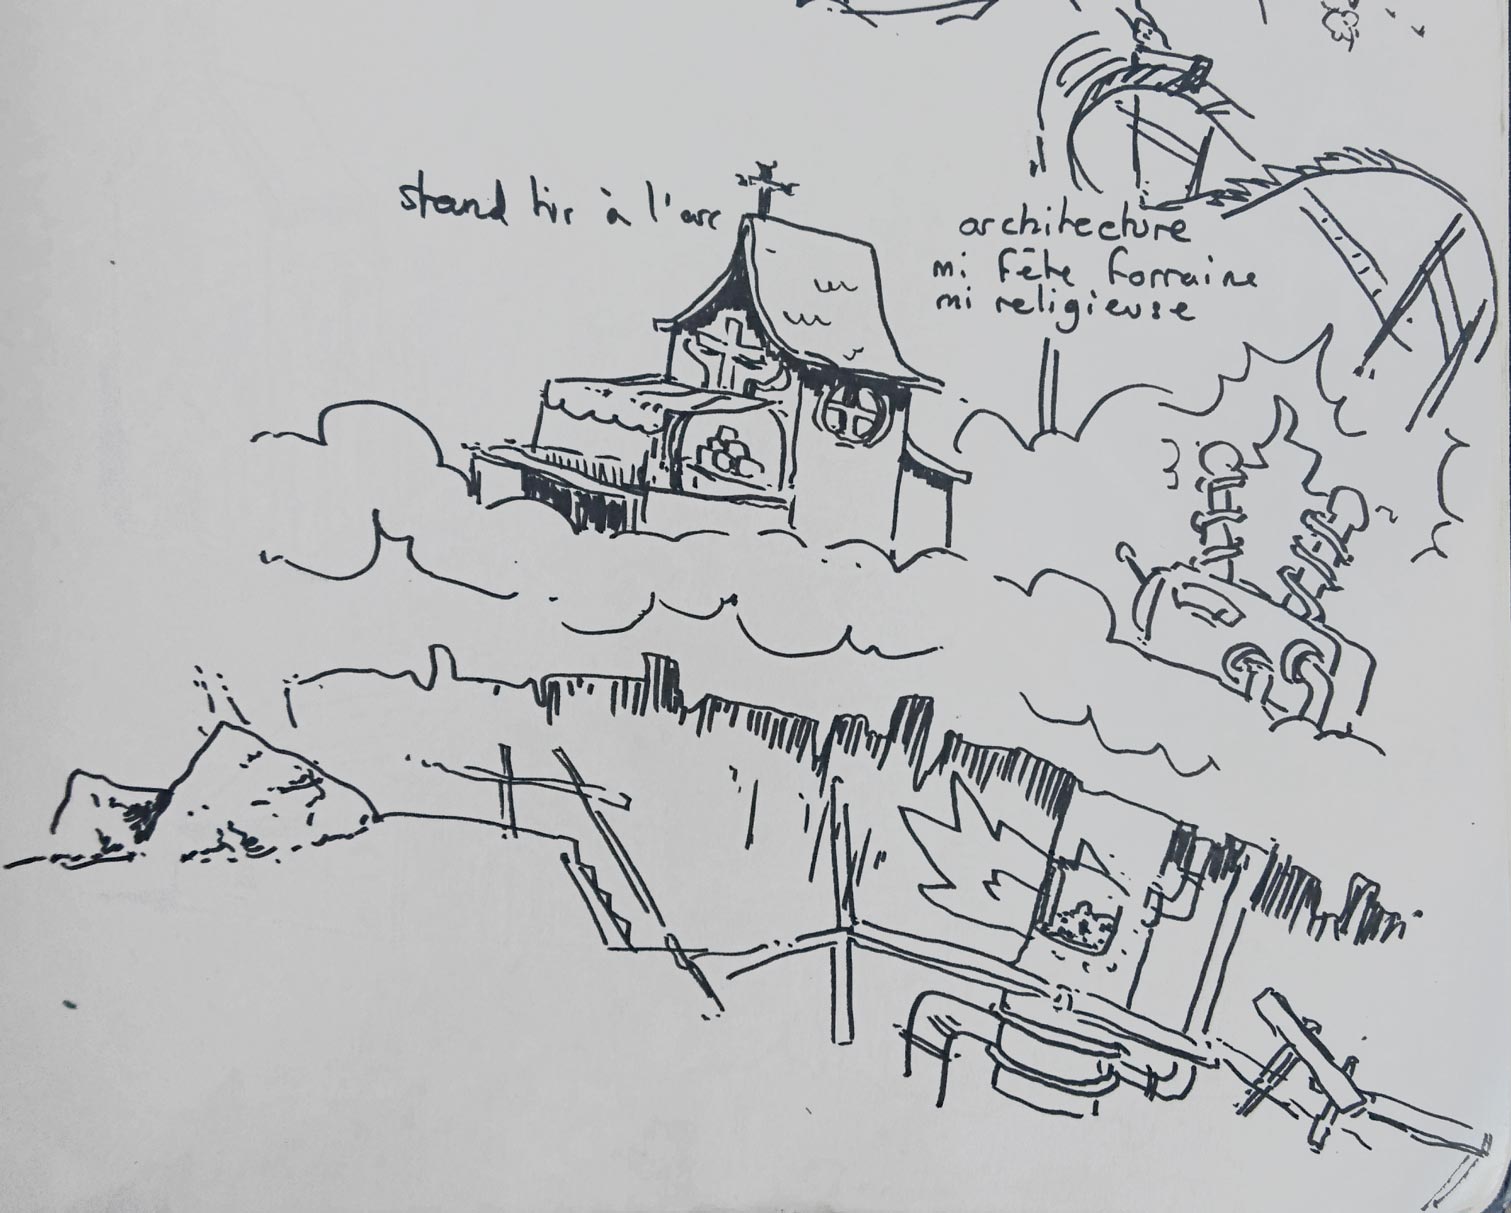 stand tir à l'arc
architecture
mi fête forraine
mi religieuse